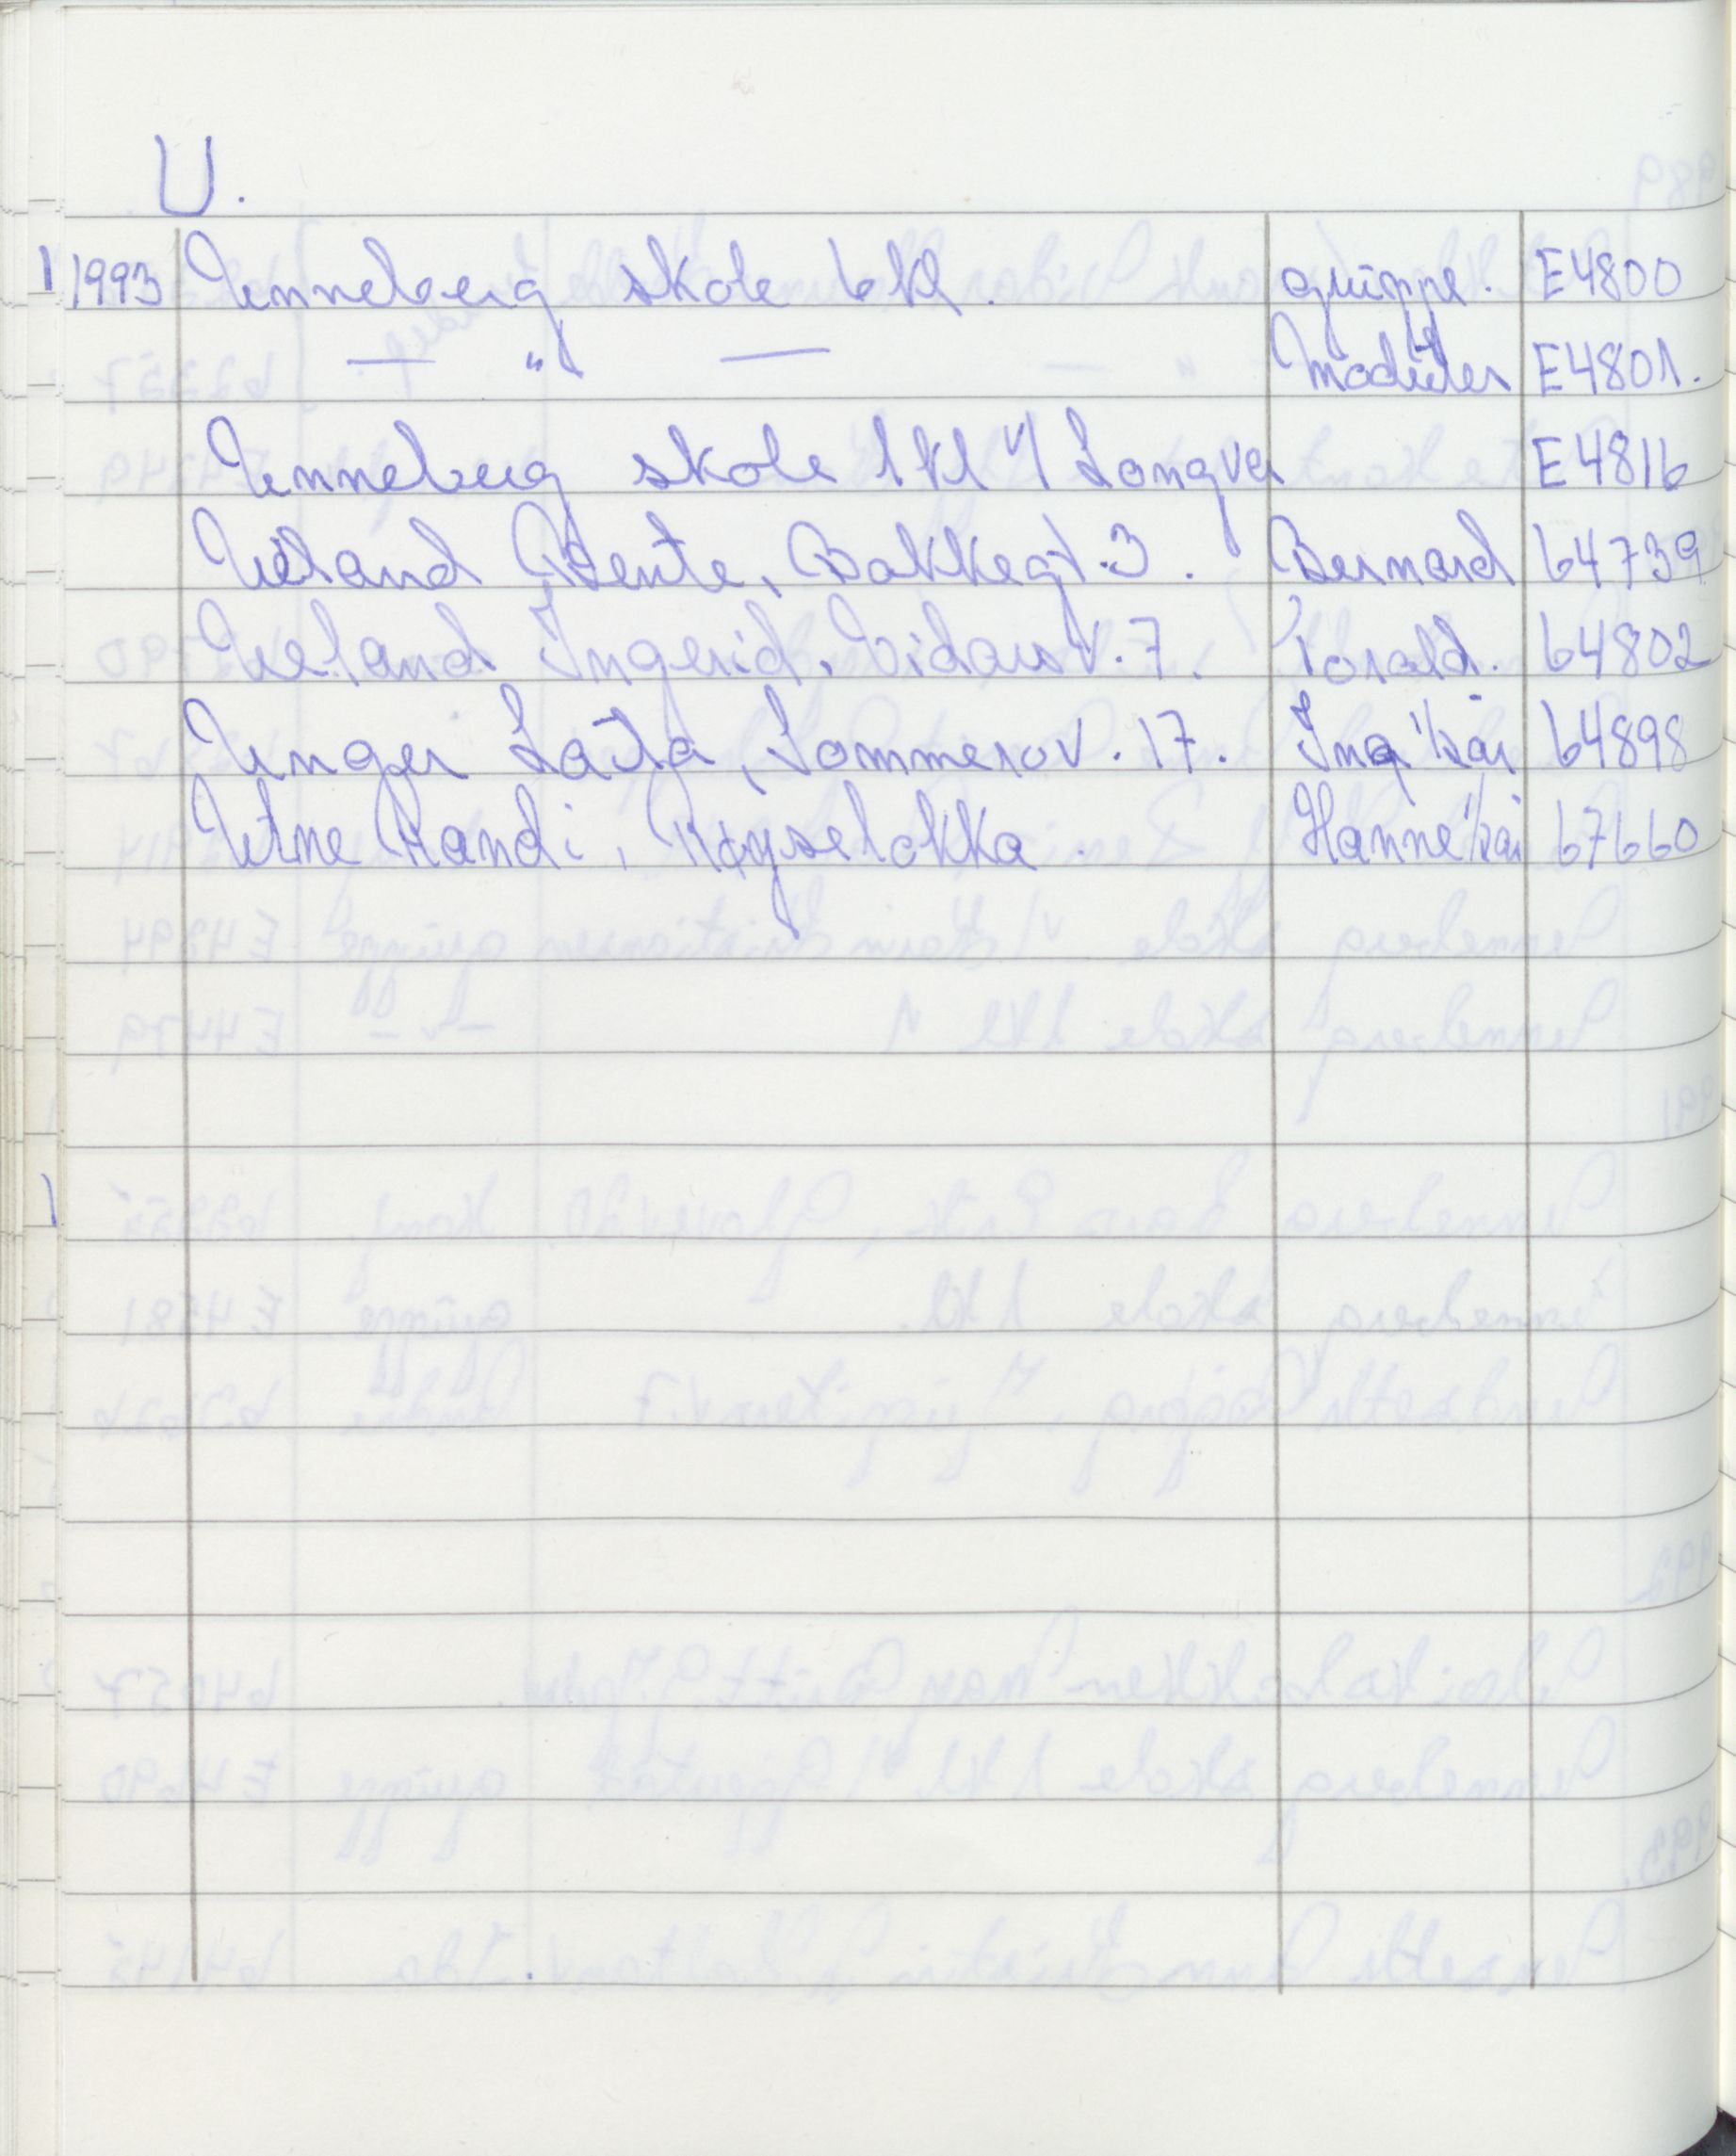 U.
1993 Unneberg skole 6 kl. gruppe. E4800
— " — Mødre E4801.
Unneberg skole 1 kl v/ Longva E4816
Ueland Bente, Bakkegt. 3. Bernard 64739
Ueland Ingerid, Vidarsv. 7. Torald. 64802
Unger Laila, Sommerov. 17. Ing 64898
Utne Randi, Røyseløkka. Hanne 67660